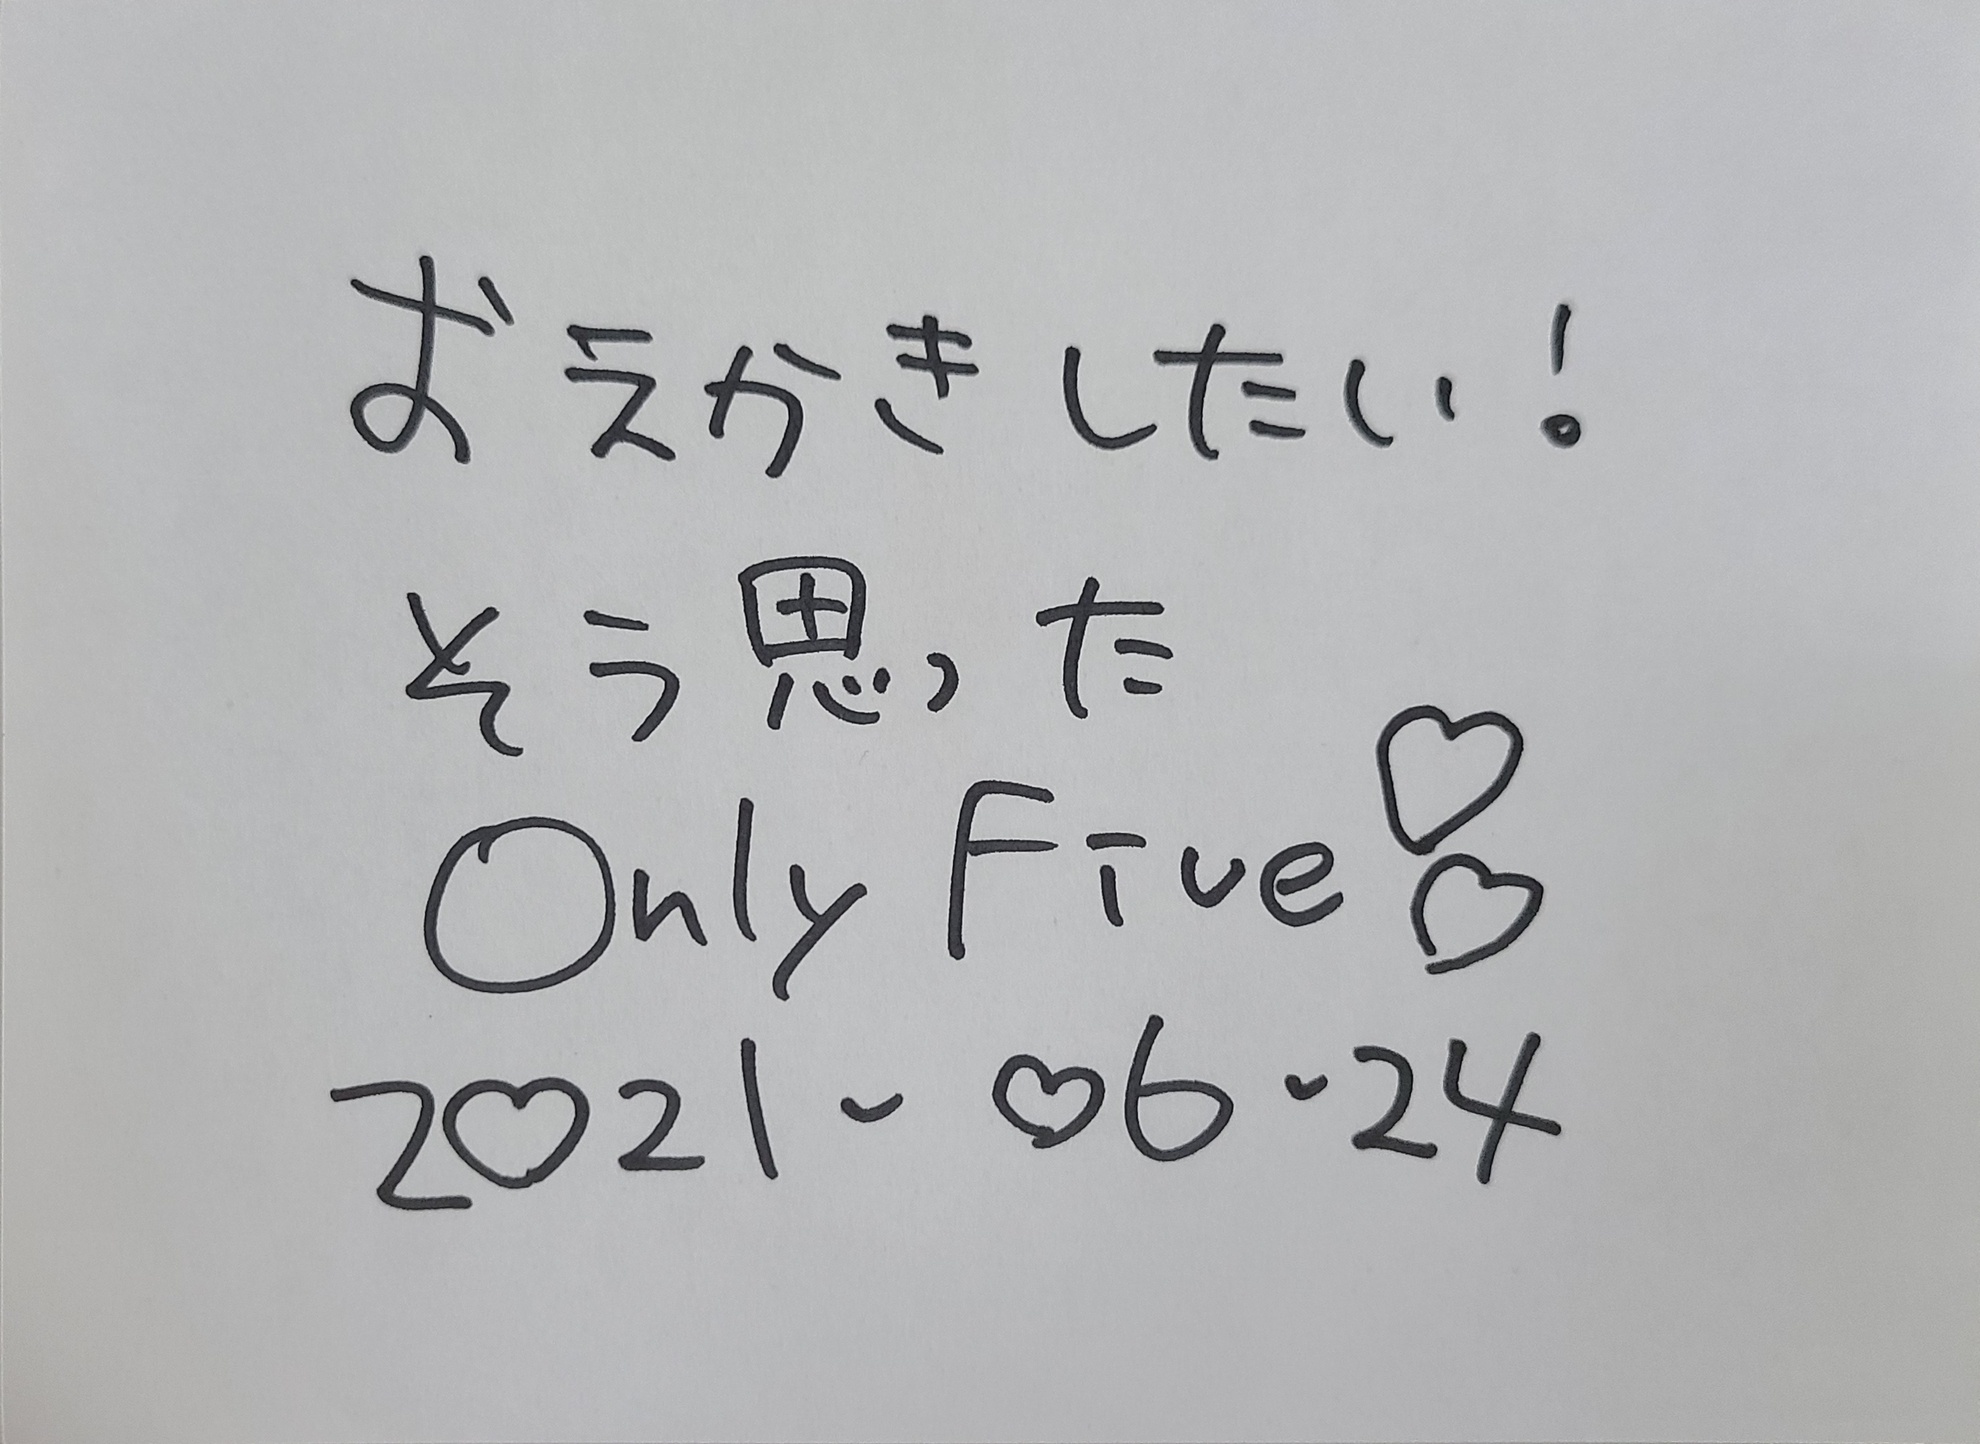 おえかきしたい!
そう思った
Only Five♡♡
2♡21-♡6-24